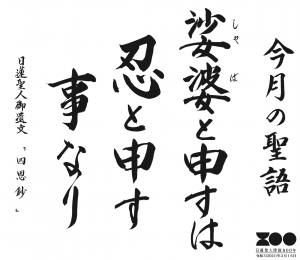 今月の聖語
娑婆と申すは
しゃば
忍と申す
事なり
日蓮聖人御遺文『四恩鈔』
日蓮聖人降誕800年
令和3(2021)年2月16日